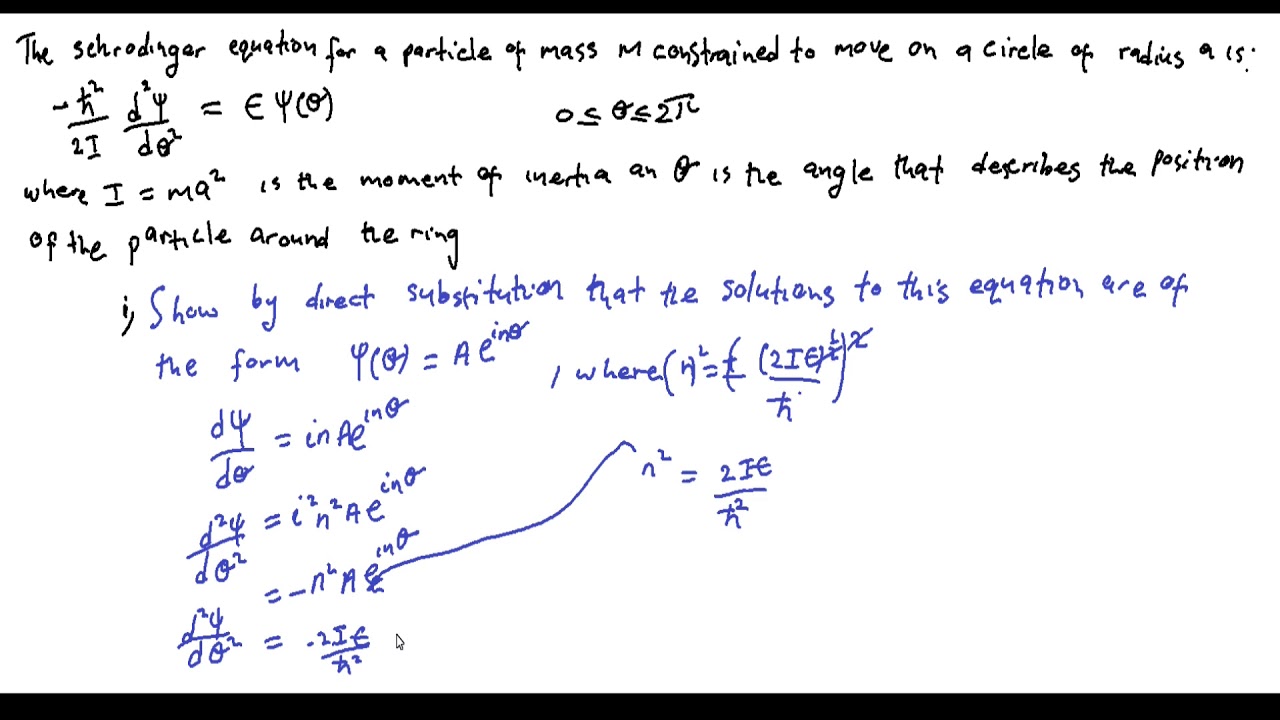 The schrodinger equation for a particle of mass M constrained to move on a circle of radius a is:
-ħ²/2I d²Ψ/dθ² = ϵ Ψ(θ)    0 ≤ θ ≤ 2π
where I = ma² is the moment of inertia an θ is the angle that describes the position
of the particle around the ring
i, Show by direct substitution that the solutions to this equation are of
the form Ψ(θ) = A e^{inθ} , where (n)² = (± (2Iϵ)^{1/2}/ħ)²
dΨ/dθ = inAe^{inθ}
n² = 2Iϵ/ħ²
d²Ψ/dθ² = i²n²Ae^{inθ}
= -n²Ae^{inθ}
d²Ψ/dθ² = -2Iϵ/ħ²